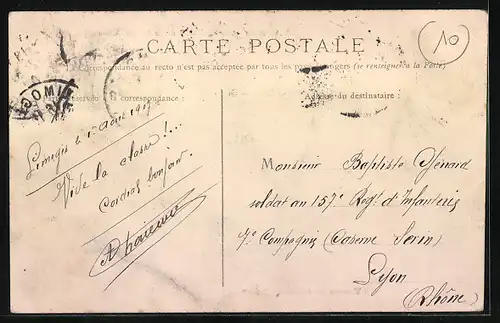 CARTE POSTALE
10
Correspondance au recto n'est pas acceptée par tous les pays étrangers (se renseigner à la Poste)
réservé à la correspondance : Adresse du destinataire :
Limoges le 1er Août
Vive la classe !...
Cordial bonjour
Monsieur Baptiste
soldat au 157e Regt d'Infanterie
7e Compagnie (Caserne Serin)
Lyon
(Rhône)